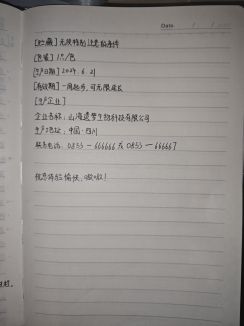 Date
[贮藏] 无须特别注意的条件
[包装] 1只/包
[生产日期] 2024.6.21
[有效期] 一周起步,可无限延长
[生产企业]
企业名称:山海遗梦生物科技有限公司
生产地址:中国·四川
联系电话:0833-666666 或 0833-666667
祝您体验愉快,啾啾!